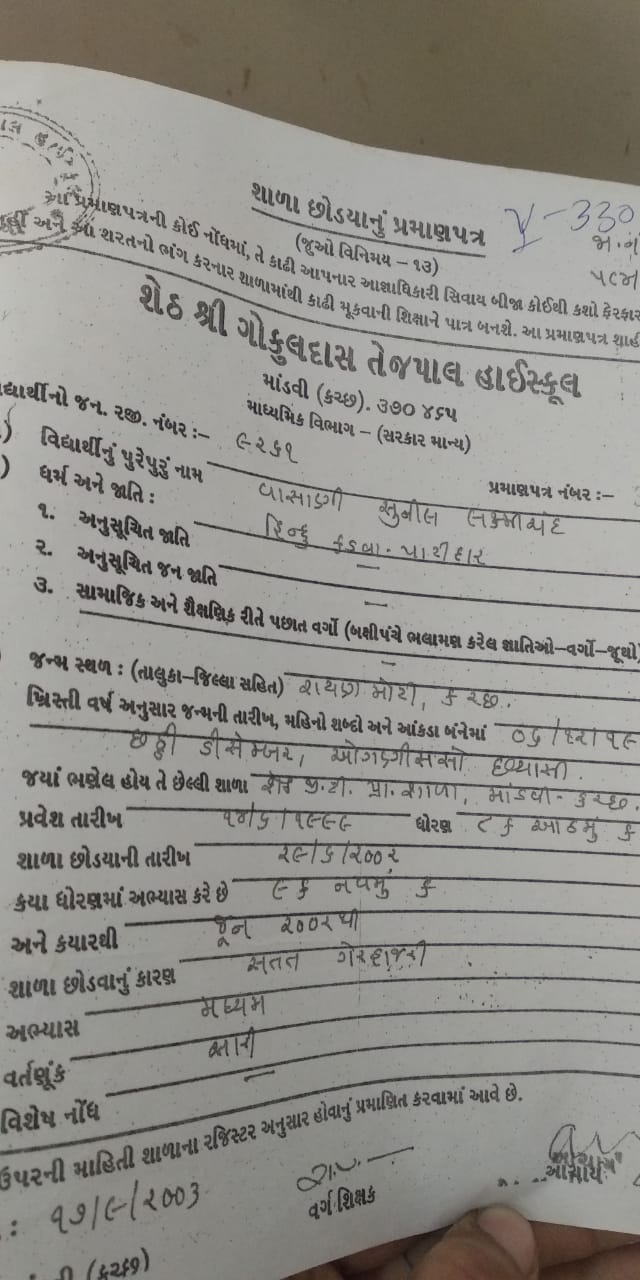 શાળા છોડયાનું પ્રમાણપત્ર
V-330
(જુઓ વિનિમય – ૧૩)
આ પ્રમાણપત્રની કોઈ નોંધમાં, તે કાઢી આપનાર આજ્ઞાધિકારી સિવાય બીજા કોઈથી કશો ફેરફાર
અને આ શરતનો ભંગ કરનાર શાળામાંથી કાઢી મૂકવાની શિક્ષાને પાત્ર બનશે. આ પ્રમાણપત્ર શાહી
શેઠ શ્રી ગોકુલદાસ તેજપાલ હાઈસ્કૂલ
માંડવી (કચ્છ). ૩૭૦ ૪૬૫
માધ્યમિક વિભાગ – (સરકાર માન્ય)
વિદ્યાર્થીનો જન. રજી. નંબર :– ૯૨૬૧
પ્રમાણપત્ર નંબર :–
વિદ્યાર્થીનું પુરેપુરું નામ વાસાણી સુનીલ લક્ષ્મીચંદ
ધર્મ અને જાતિ : હિન્દુ કડવા પાટીદાર
૧. અનુસૂચિત જાતિ —
૨. અનુસૂચિત જન જાતિ —
૩. સામાજિક અને શૈક્ષણિક રીતે પછાત વર્ગો (બક્ષીપંચે ભલામણ કરેલ જ્ઞાતિઓ–વર્ગો–જૂથો)
—
જન્મ સ્થળ : (તાલુકા–જિલ્લા સહિત) રાયણ મોટી, કચ્છ.
ખ્રિસ્તી વર્ષ અનુસાર જન્મની તારીખ, મહિનો શબ્દો અને આંકડા બંનેમાં ૦૬/૧૨/૧૯
છઠ્ઠી ડીસેમ્બર, ઓગણીસસો છયાસી.
જયાં ભણેલ હોય તે છેલ્લી શાળા શેઠ જી.ટી. પ્રા. શાળા, માંડવી - કચ્છ.
પ્રવેશ તારીખ ૧૪/૬/૧૯૯૯ ધોરણ ૮ ક આઠમું ક
શાળા છોડયાની તારીખ ૨૯/૬/૨૦૦૨
કયા ધોરણમાં અભ્યાસ કરે છે ૯ ક નવમું ક
અને કયારથી જૂન ૨૦૦૨થી
શાળા છોડવાનું કારણ સતત ગેરહાજરી
અભ્યાસ મધ્યમ
વર્તણૂંક સારી
વિશેષ નોંધ —
ઉપરની માહિતી શાળાના રજિસ્ટર અનુસાર હોવાનું પ્રમાણિત કરવામાં આવે છે.
: ૧૭/૯/૨૦૦૩
વર્ગ શિક્ષક
આચાર્ય
(કચ્છ)